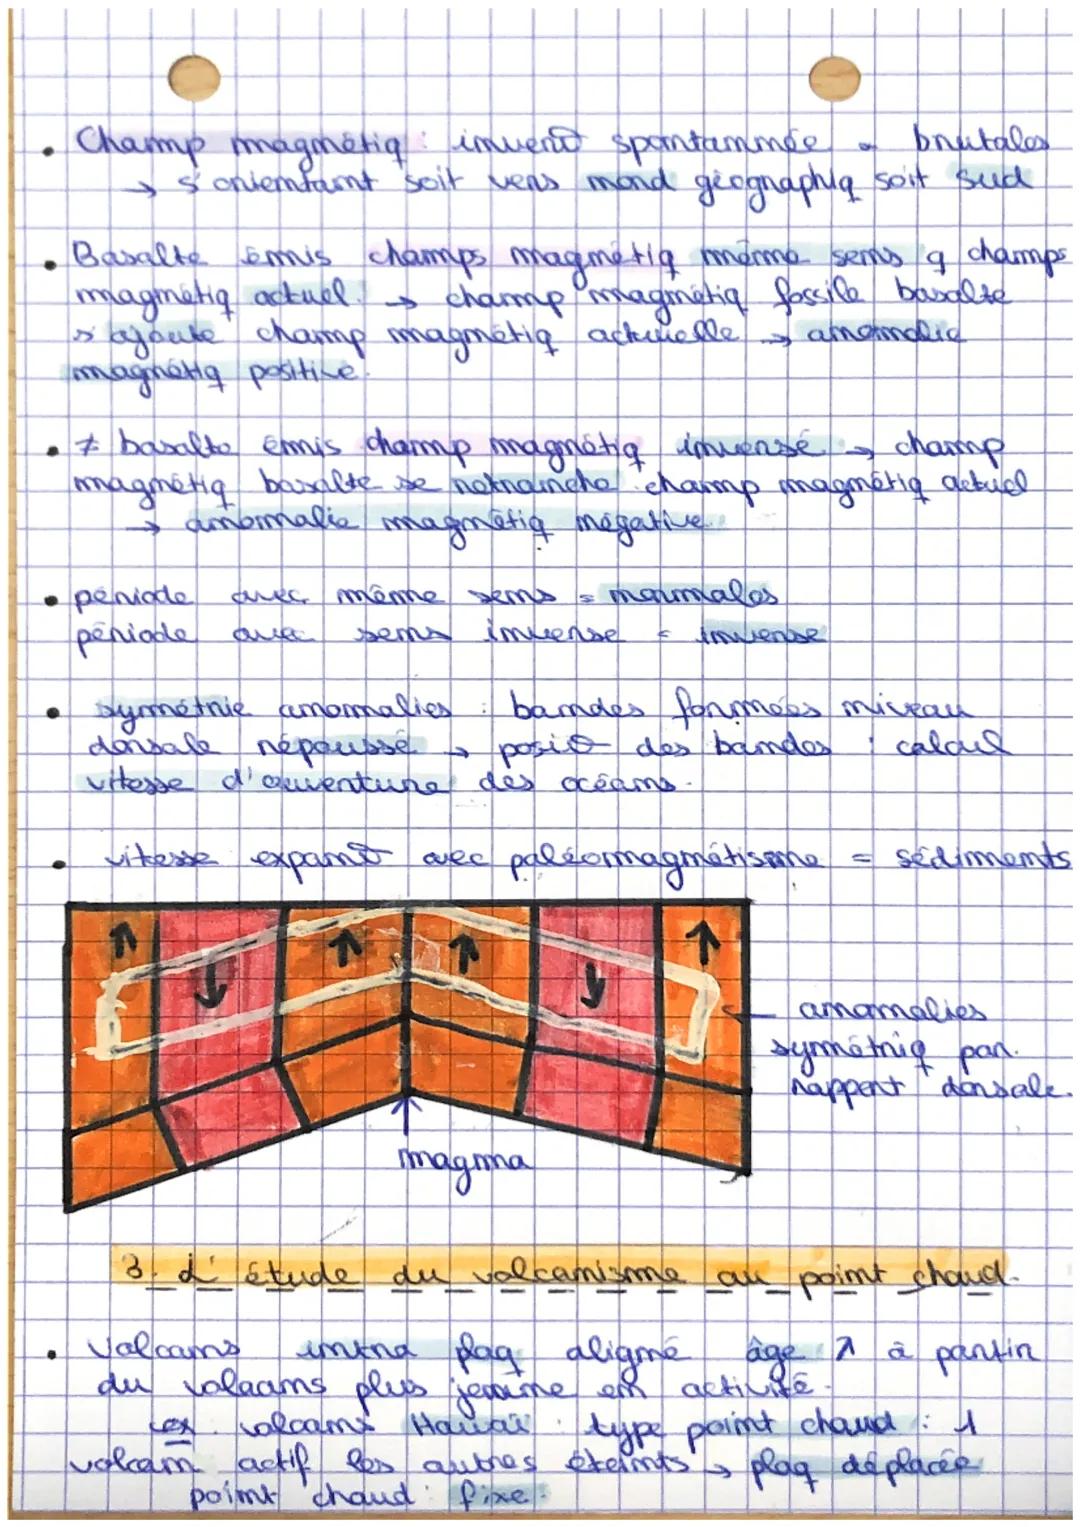 • Champ magnétiq : invers° spontannée - brutales
→ s'orientant soit vers nord géographiq soit sud
• Basalte émis champs magnétiq même sens q champs
magnétiq actuel. → champ magnétiq fossile basalte
s'ajoute champ magnétiq actuelle → anomalie
magnétiq positive.
• ≠ basalte émis champ magnétiq inversé → champ
magnétiq basalte se retranche champ magnétiq actuel
→ anomalie magnétiq négative.
• période avec même sens = normales
période avec sens inverse = inverse
• symétrie anomalies : bandes formées niveau
dorsale repoussé → posi° des bandes : calcul
vitesse d'ouverture des océans.
• vitesse expans° avec paléomagnétisme = sédiments
anomalies
symétriq par.
rapport dorsale.
magma
3. L'étude du volcanisme au point chaud.
• Volcans intra plaq aligné âge ↗ à partir
du volcans plus jeune en activité.
ex volcans Hawaï : type point chaud : 1
volcan actif les autres éteints → plaq déplacée
point chaud : fixe.